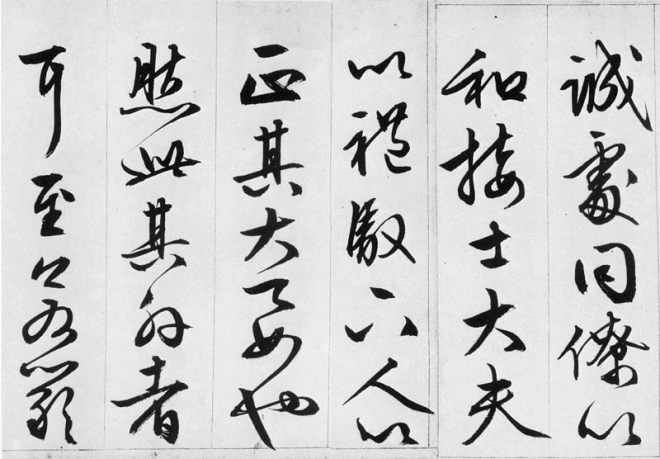 誠處同僚以
和接士大夫
以禮馭下人以
正其大要也
然此其外者
耳至